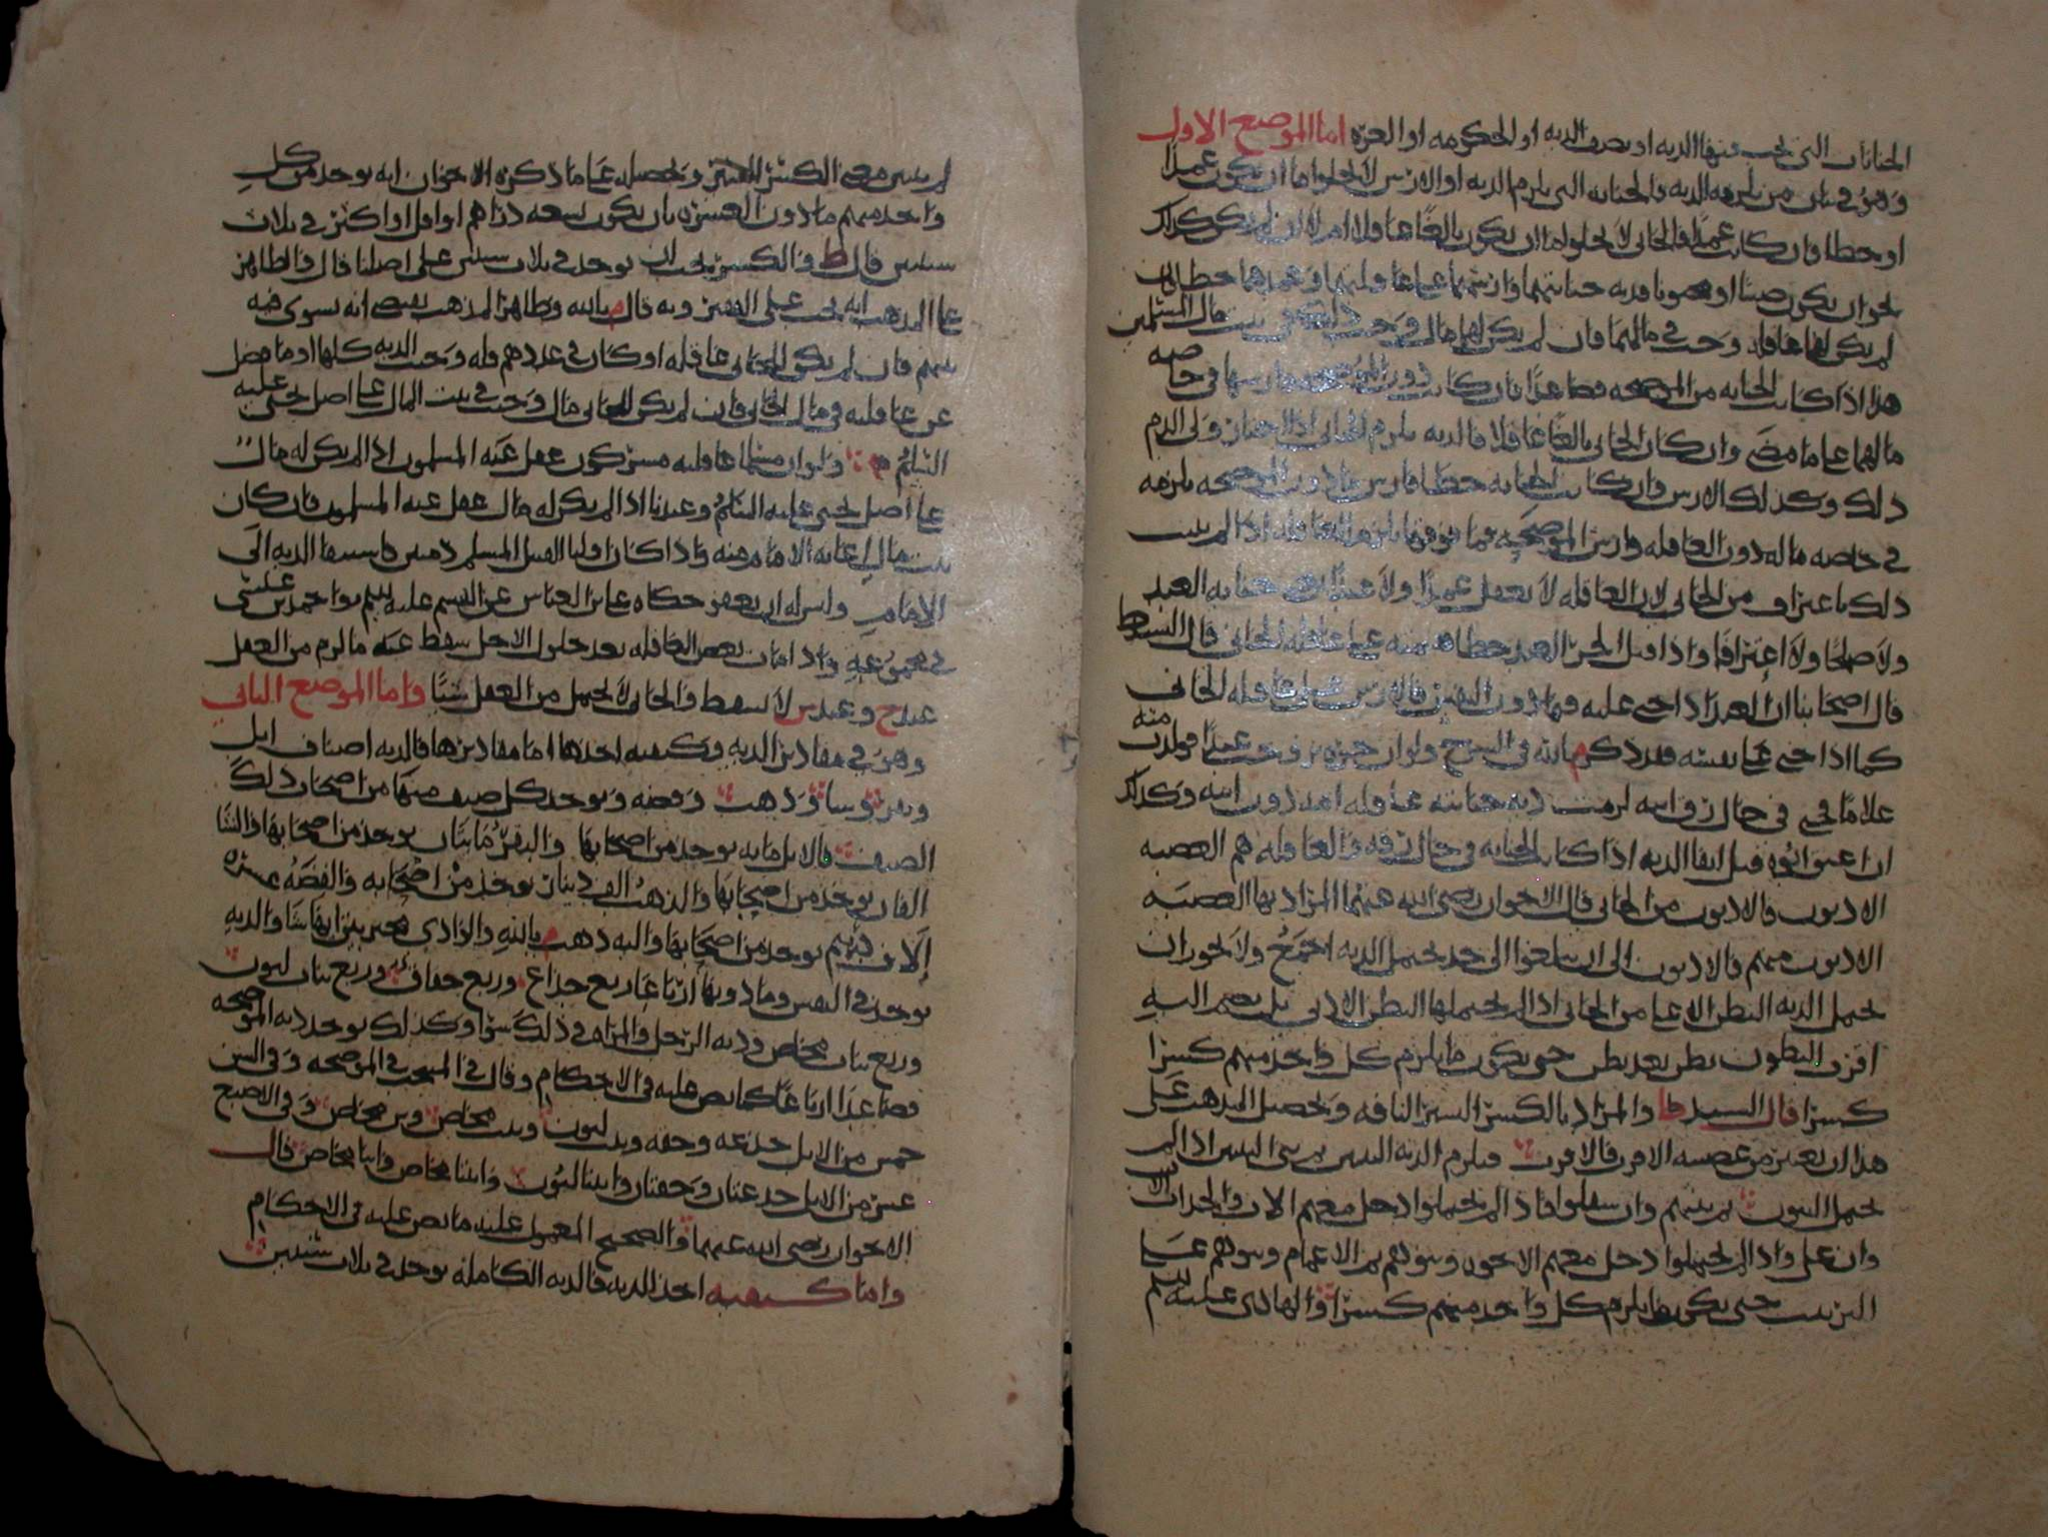 الجنايات التي تجب فيها الديه او نصف الديه او الحكومه او الغره اما الموضع الاول
وهو في بيان من تلزمه الديه فالجنايه التي تلزم الديه او الارش لا تخلوا اما ان تكون عمدا
او خطا فان كانت عمدا فالجاني لا يخلوا اما ان يكون بالغا عاقلا ام لا ان لم يكن كذلك
نحو ان يكون صبيا او مجنونا فديه جنايتهما وارشهما على عاقلتهما وعمدهما خطا فان
لم يكن لهما عاقله وجبت في مالهما فان لم يكن لهما مال وجب ذلك في بيت مال المسلمين
هذا اذا كانت الجنايه من الموضحه فصاعدا فان كانت دون الموضحه فارشها في خاصه
مالهما على ما مضى وان كان الجاني بالغا عاقلا فالديه تلزم الجاني اذا اختار ولي الدم
ذلك وكذلك الارش وان كانت الجنايه خطا فارش ما دون الموضحه يلزمه
في خاصه ماله دون العاقله وارش الموضحه فما فوقها يلزم العاقله اذا لم يثبت
ذلك باعتراف من الجاني لان العاقله لا تعقل عمدا ولا عبدا يعني جنايه العبد
ولا صلحا ولا اعترافا واذا قتل الحر العبد خطا فقيمته على عاقله الجاني قال السيد ط
قال اصحابنا ان العبد اذا جني عليه فيما دون النفس فالارش على عاقله الجاني
كما اذا جنى على نفسه فقد ذكره م بالله في الشرح ولو ان حره تزوجت عبدا فولدت منه
غلاما فجنى في حال رق ابيه لزمت ديه جنايته عاقله امه دون ابيه وكذلك
ان اعتق ابوه قبل ايفا الديه اذا كانت الجنايه في حال رقه والعاقله هم العصبه
الادنون فالادنون من الجاني قال الاخوان رضي الله عنهما المراد بها العصبه
الادنون منهم فالادنون الى ان يبلغوا الى حد يحتمل الديه اجمع ولا يجوز ان
تحمل الديه البطن الاعلى من الجاني اذا لم تحتملها البطن الادنى بل يضم اليه
اقرب البطون بطن بعد بطن حتى يكون ما يلزم كل واحد منهم كسرا
كسرا قال السيد ط والمراد بالكسر اليسير التافه وتحصيل المذهب على
هذا ان يعتبر من عصبته الاقرب فالاقرب فيلزم الديه البنين ثم بني البنين اذا لم
تحتمل البنون ثم بنيهم وان سفلوا فاذا لم يحتملوا ادخل معهم الاب والجد اب الاب
وان علا واذا لم يحتملوا ادخل معهم الاخوه وبنوهم ثم الاعمام وبنوهم على
الترتيب حتى يكون ما يلزم كل واحد منهم كسرا والهادي عليه السلم
لم يبين معنى الكسر وتحصيله على ما ذكره الاخوان انه يوخذ من كل
واحد منهم ما دون العشره بان يكون تسعه دراهم او اقل او اكثر في ثلاث
سنين قال ط والكسر يجب ان يوخذ في ثلاث سنين على اصلنا قال والظاهر
على المذهب انه يجب على الفقير وبه قال م بالله وظاهر المذهب يقتضي انه يسوى فيه
بينهم فان لم يكن للجاني عاقله او كان في عددهم قله وجبت الديه كلها او ما فضل
عن عاقلته في مال الجاني فان لم يكن للجاني مال وجبت في بيت المال على اصل يحيى عليه
السلم ولو ان مسلما عاقلته مشركون عقل عنه المسلمون اذا لم يكن له مال
على اصل يحيى عليه السلم وعندنا اذا لم يكن له مال عقل عنه المسلمون فان كان
بيت مال اعانه الامام منه واذا كان اوليا القتيل المسلم ذميين فاسند الديه الى
الامام وليس له ان يعفو حكاه على بن العباس عن القسم عليه السلم واحمد بن عيسى
في مجموعه واذا مات بعض العاقله بعد حلول الاجل سقط عنه ما لزم من العقل
عند ح وعند ش لا يسقط والجاني لا يحمل من العقل شيا واما الموضع الثاني
وهو في مقادير الديه وكيفيه اخذها اما مقاديرها فالديه اصناف ابل
وبقر وشا وذهب وفضه ويوخذ كل صنف منها من اصحاب ذلك
الصنف فالابل مايه يوخذ من اصحابها والبقر مايتان يوخذ من اصحابها والشا
الفان يوخذ من اصحابها والذهب الف دينار يوخذ من اصحابه والفضه عشره
الاف درهم يوخذ من اصحابها واليه ذهب م بالله والجاني مخير بين ايها شا والديه
توخذ في النفس وما دونها ارباعا ربع جذاع وربع حقاق وربع بنات لبون
وربع بنات مخاض وديه الرجل والمراه في ذلك سوا وكذلك يوخذ ديه الموضحه
فصاعدا ارباعا كما نص عليه في الاحكام وقال في المنتخب في الموضحه وفي السن
خمس من الابل جذعه وحقه وبنت لبون وبنت مخاض وابن مخاض وفي الاصبع
عشر من الابل جذعتان وحقتان وابنتا لبون وابنتا مخاض وابنا مخاض قال
الاخوان رضي الله عنهما والصحيح المعمول عليه ما نص عليه في الاحكام
واما كيفيه اخذ الديه فالديه الكامله توخذ في ثلاث سنين